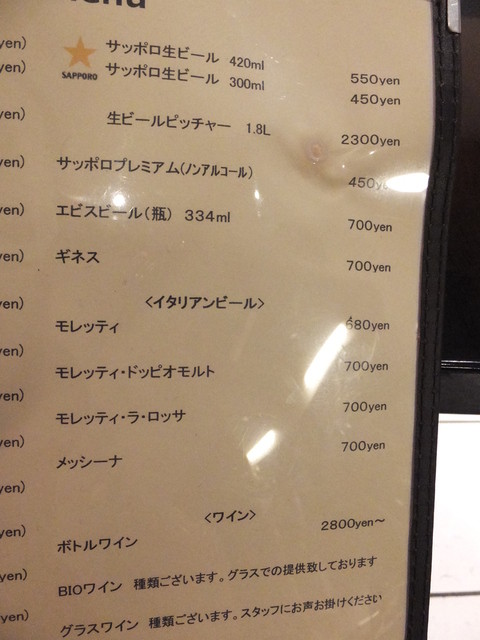 yen)
サッポロ生ビール 420ml 550yen
SAPPORO
yen)
サッポロ生ビール 300ml 450yen
yen)
生ビールピッチャー 1.8L 2300yen
yen)
サッポロプレミアム(ノンアルコール) 450
yen)
エビスビール(瓶) 334ml 700yen
yen)
ギネス 700yen
yen)
<イタリアンビール>
モレッティ 680yen
yen)
モレッティ・ドッピオモルト 700yen
yen)
モレッティ・ラ・ロッサ 700yen
yen)
メッシーナ 700yen
yen)
<ワイン>
yen)
ボトルワイン 2800yen～
yen)
BIOワイン 種類ございます。グラスでの提供致しております
yen)
グラスワイン 種類ございます。スタッフにお声お掛けください